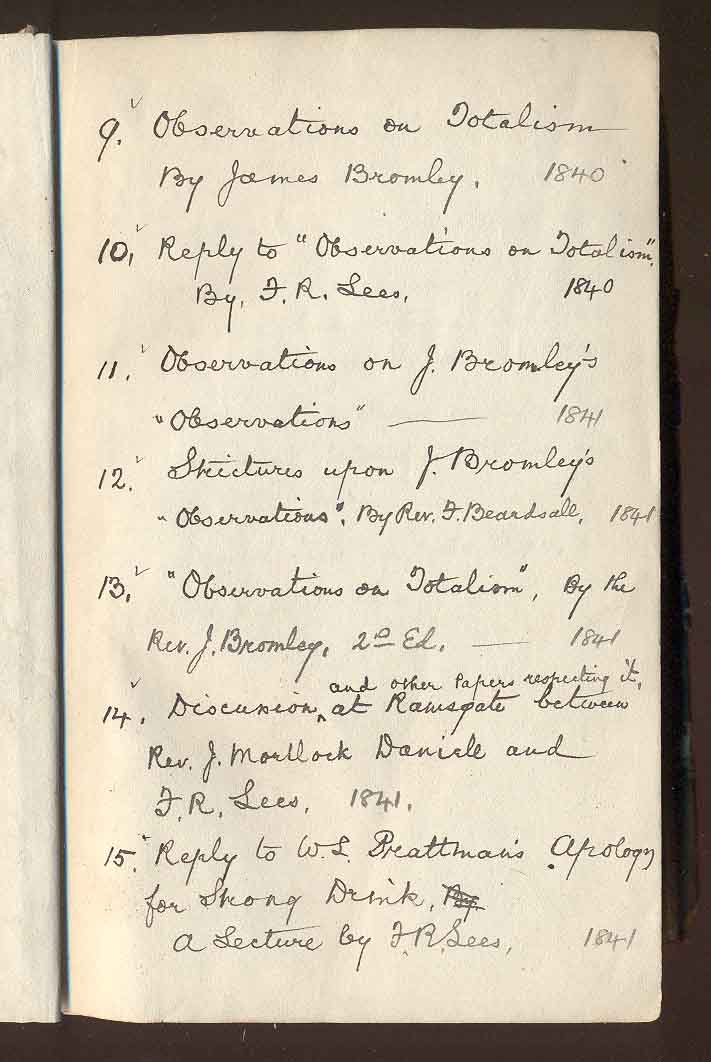 9. Observations on Totalism
By James Bromley. 1840
10. Reply to "Observations on Totalism".
By, F. R. Lees. 1840
11. Observations on J. Bromley's
"Observations" — 1841
12. Strictures upon J. Bromley's
"Observations". By Rev. F. Beardsall. 1841
13. "Observations on Totalism", By the
Rev. J. Bromley. 2nd Ed. — 1841
and other Papers respecting it.
14. Discussion ^ at Ramsgate between
Rev. J. Mortlock Daniell and
F. R. Lees. 1841.
15. Reply to W. S. Prattman's Apology
for Strong Drink, By
A Lecture by F. R. Lees. 1841